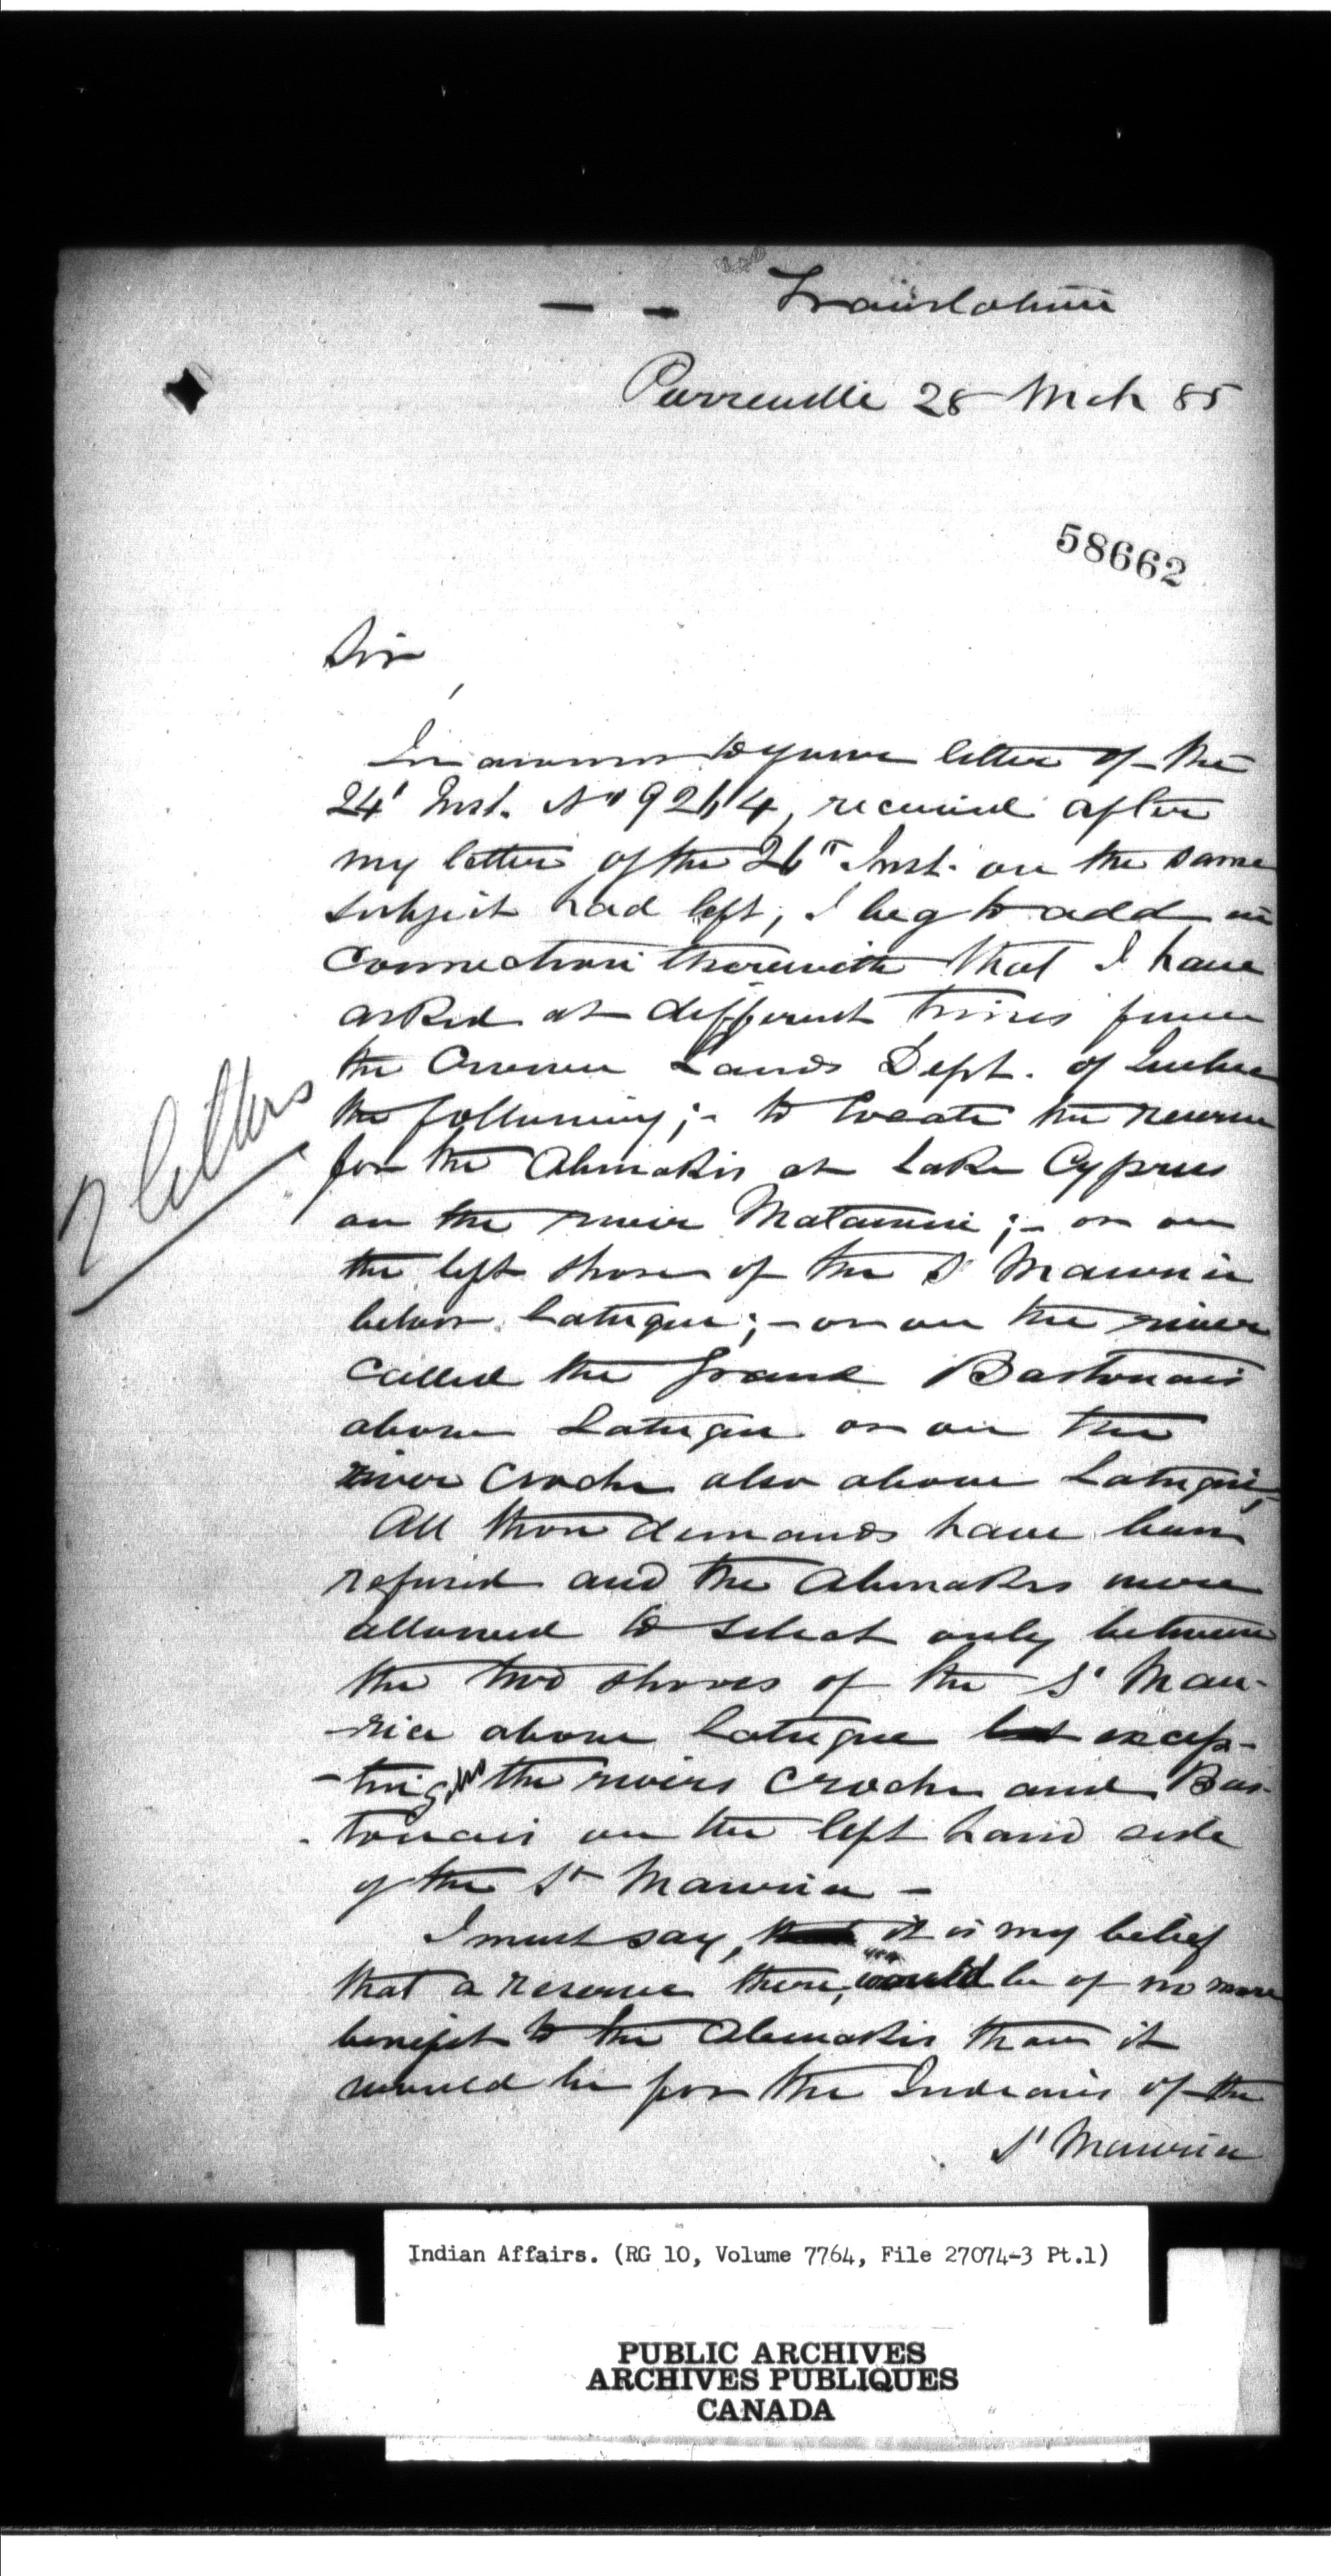 Translation
Pierreville 28 Mch 85
58662
Sir,
In answer to your letter of the
24' Inst. No 9264, received after
my letter of the 26th Inst. on the same
subject had left, I beg to add in
connection therewith that I have
asked at different times from
the Crown Lands Dept. of Quebec
the following;- to locate the reserve
for the Abenakis at Lake Cyprus
on the river Matawin;- or on
the left shore of the St Maurice
below Latuque;- or on the river
called the Grand Bastonais
above Latuque or on the
river Croche also above Latuque,
All those demands have been
refused and the Abenakis were
allowed to select only between
the two shores of the St Mau-
-rice above Latuque excep-
-ting the rivers Croche and Bas-
-tonais on the left hand side
of the St Maurice -
I must say, it is my belief
that a reserve there, would be of no more
benefit to the Abenakis than it
would be for the Indians of the
St Maurice
letters
Indian Affairs. (RG 10, Volume 7764, File 27074-3 Pt.1)
PUBLIC ARCHIVES
ARCHIVES PUBLIQUES
CANADA